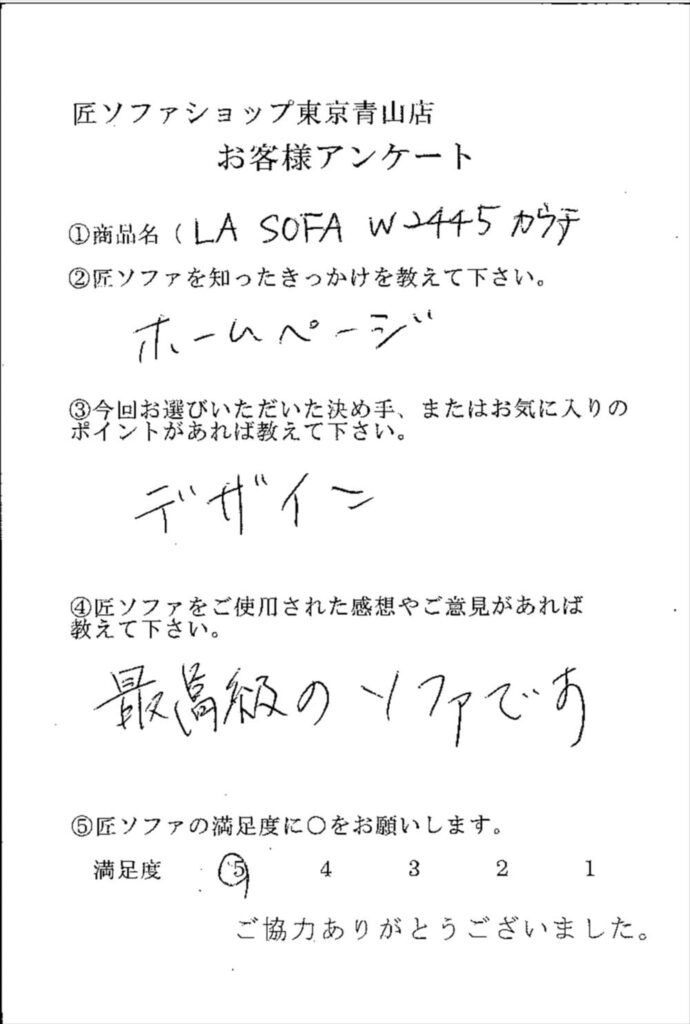 匠ソファショップ東京青山店
お客様アンケート
①商品名（ LA SOFA W2445 カウチ
②匠ソファを知ったきっかけを教えて下さい。
ホームページ
③今回お選びいただいた決め手、またはお気に入りの
ポイントがあれば教えて下さい。
デザイン
④匠ソファをご使用された感想やご意見があれば
教えて下さい。
最高級のソファです
⑤匠ソファの満足度に○をお願いします。
満足度 5 4 3 2 1
ご協力ありがとうございました。